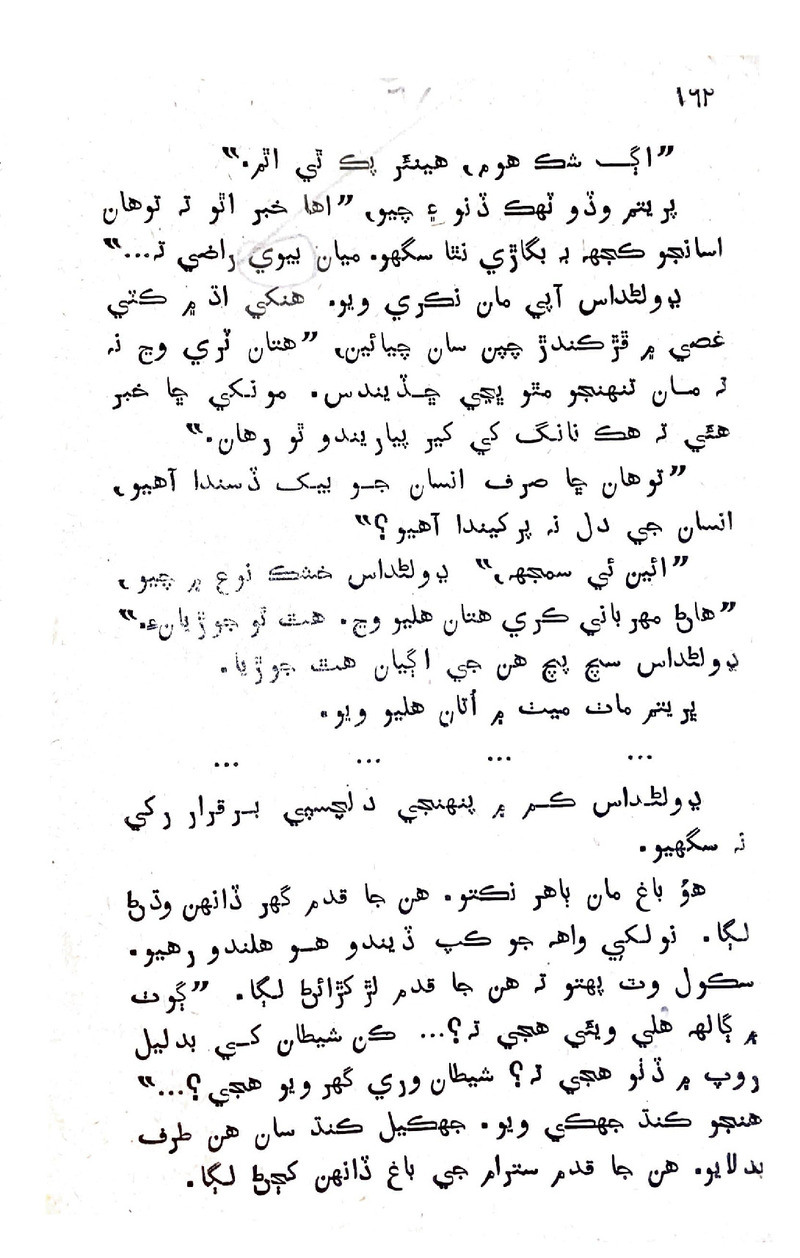 ١٦٢
”اڳ شڪ هوم، هينئر پڪ ٿي اٿم.“
پريتم وڏو ٽهڪ ڏنو ۽ چيو، ”اها خبر اٿو تہ توهان
اسانجو ڪجھہ بہ بگاڙي نٿا سگهو. ميان بيوي راضي تہ...“
ڊولڻداس آپي مان نڪري ويو. هنکي اڌ ۾ ڪٽي
غصي ۾ ڦڙڪندڙ چپن سان چيائين، ”هتان ٽري وڃ نہ
تہ مان تنهنجو مٿو ڀڃي ڇڏيندس. مونکي ڇا خبر
هئي تہ هڪ نانگ کي کير پياريندو ٿو رهان.“
”توهان ڇا صرف انسان جو بيڪ ڏسندا آهيو،
انسان جي دل نہ پرکيندا آهيو؟“
”ائين ئي سمجھہ،“ ڊولڻداس خشڪ نوع ۾ چيو،
”هاڻ مهرباني ڪري هتان هليو وڃ. هٿ ٿو جوڙيانءِ.“
ڊولڻداس سچ پچ هن جي اڳيان هٿ جوڙيا.
پريتم مات ميٺ ۾ اُتان هليو ويو.
... ... ... ...
ڊولڻداس ڪم ۾ پنهنجي دلچسپي برقرار رکي
نہ سگهيو.
هوُ باغ مان ٻاهر نڪتو. هن جا قدم گهر ڏانهن وڌڻ
لڳا. نولکي واھہ جو ڪپ ڏيندو هو هلندو رهيو.
سڪول وٽ پهتو تہ هن جا قدم لڙکڙائڻ لڳا. ”ڳوٺ
۾ ڳالهہ هلي ويئي هجي تہ؟... ڪن شيطان کي بدليل
روپ ۾ ڏٺو هجي تہ؟ شيطان وري گهر ويو هجي؟...“
هنجو ڪنڌ جهڪي ويو. جهڪيل ڪنڌ سان هن طرف
بدلايو. هن جا قدم سترام جي باغ ڏانهن کڄڻ لڳا.